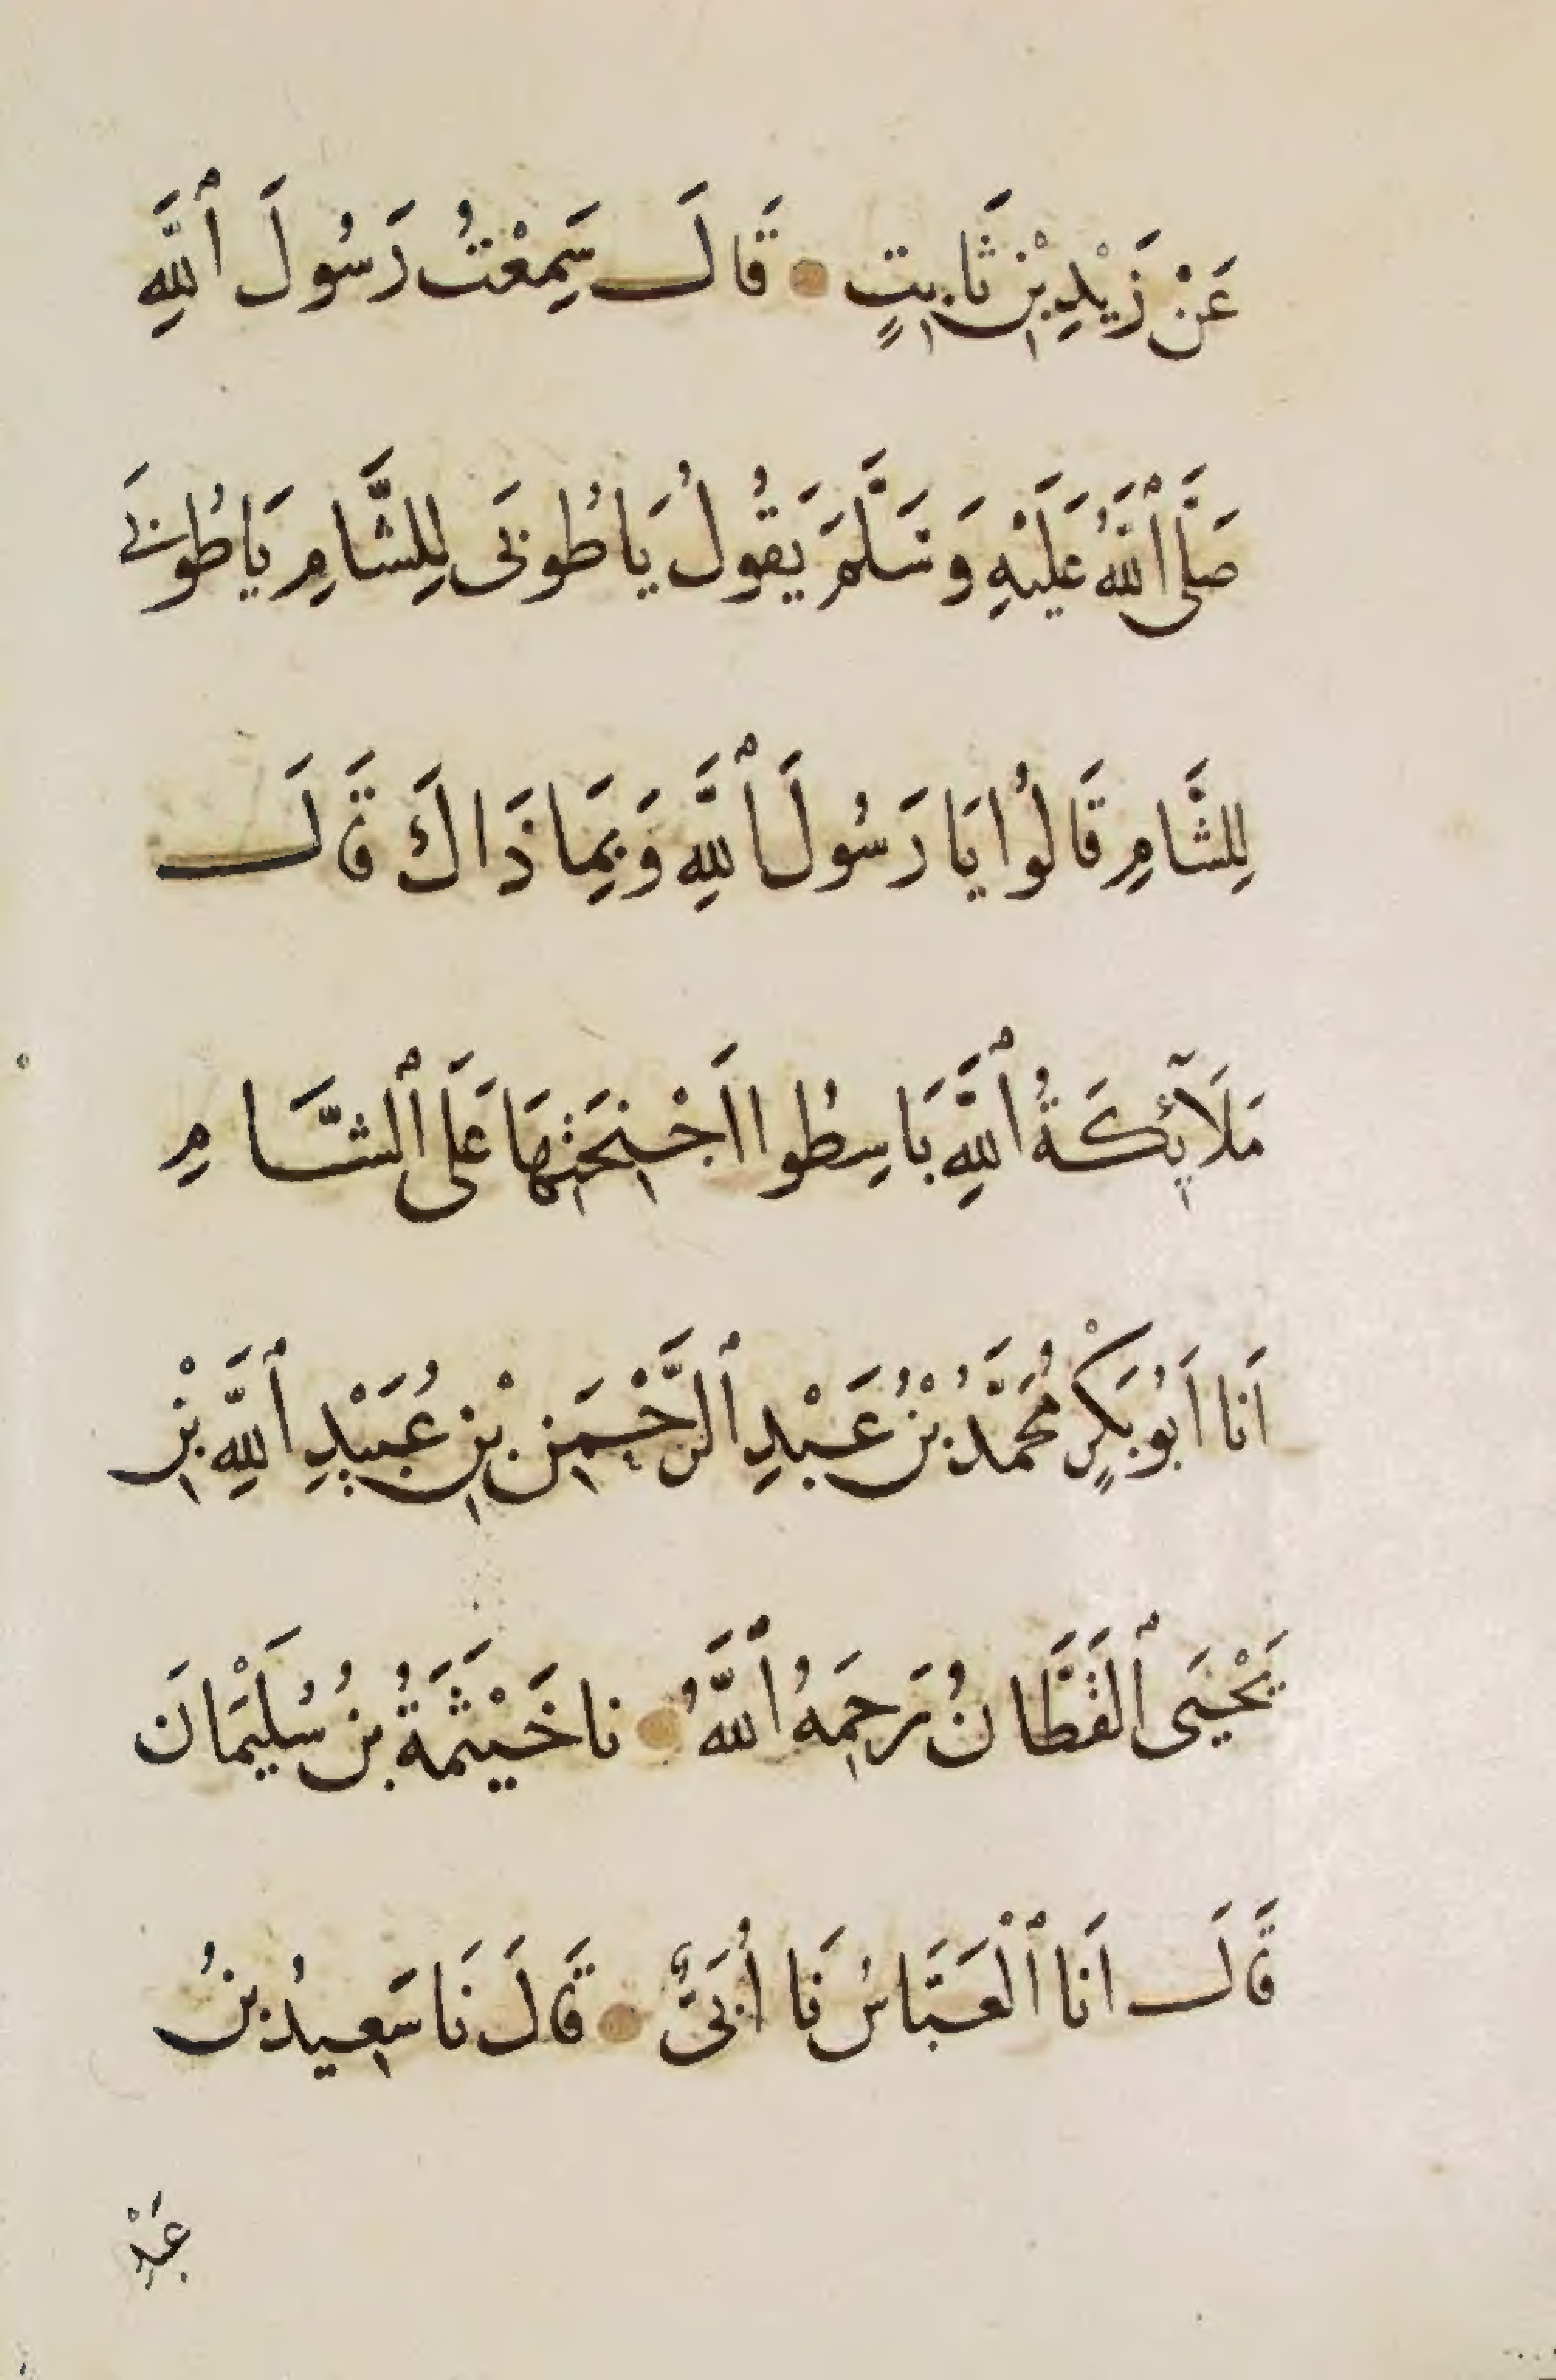 عَنْ زَيْدِ بْنِ ثَابِتٍ قَالَ سَمِعْتُ رَسُولَ ٱللَّهِ
صَلَّى ٱللَّهُ عَلَيْهِ وَسَلَّمَ يَقُولُ يَا طُوبَى لِلشَّامِ يَا طُوبَى
لِلشَّامِ قَالُوا يَا رَسُولَ ٱللَّهِ وَبِمَا ذَاكَ قَالَ
مَلَآئِكَةُ ٱللَّهِ بَاسِطُوا اَجْنِحَتِهَا عَلَى ٱلشَّامِ
اَنَا اَبُو بَكْرٍ مُحَمَّدُ بْنُ عَبْدِ ٱلرَّحْمَنِ بْنِ عُبَيْدِ ٱللَّهِ بْنِ
يَحْيَى ٱلقَطَّانُ رَحِمَهُ ٱللَّهُ نا خَيْثَمَةُ بنُ سُلَيْمَانَ
قَالَ اَنَا ٱلْعَبَّاسُ نَا أُبَيٌّ قَالَ نَا سَعِيدُ بنُ
عَبْدِ